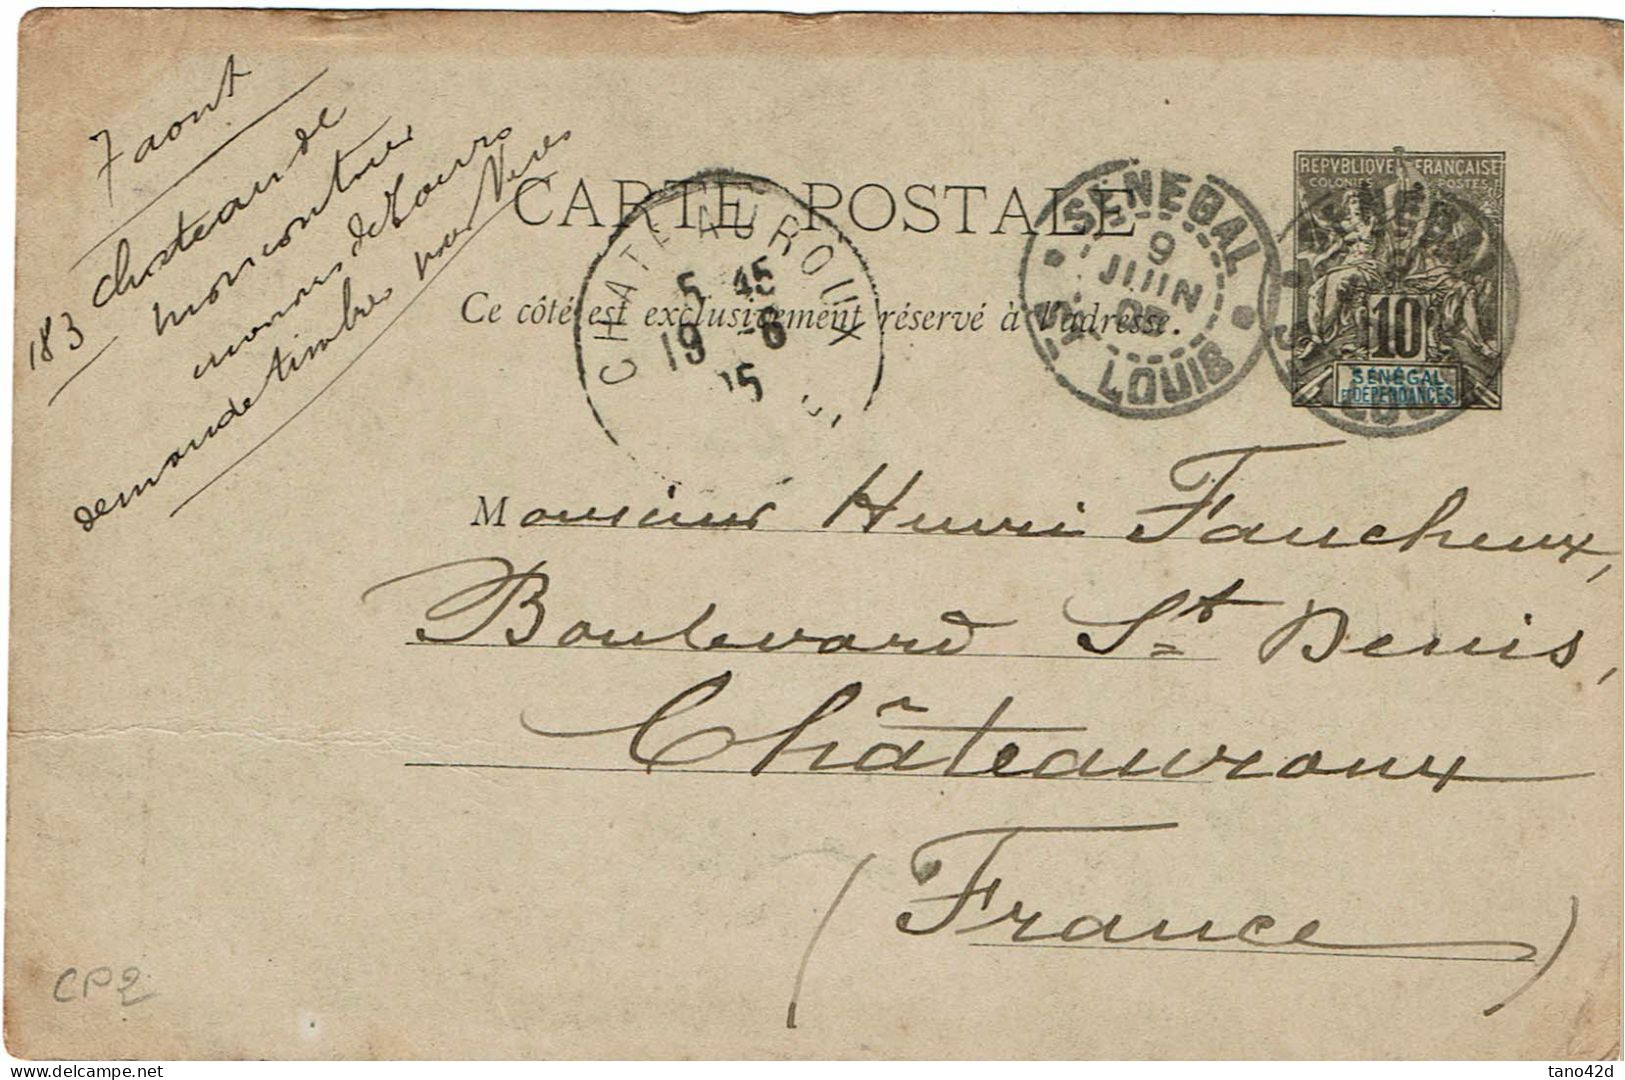 7 aout
183 chateau de
moncontour
demande timbres
CARTE POSTALE
Ce côté est exclusivement réservé à l'adresse.
CHATEAUROUX
5 45
19 -6
05
SÉNÉGAL
9
JUIN
05
ST LOUIS
REPVBLIQVE FRANÇAISE
COLONIES POSTES
10
SÉNÉGAL
ET DÉPENDANCES
Monsieur Henri Faucheux,
Boulevard St Denis,
Châteauroux
(France)
CP2
delcampe.net
tano42d